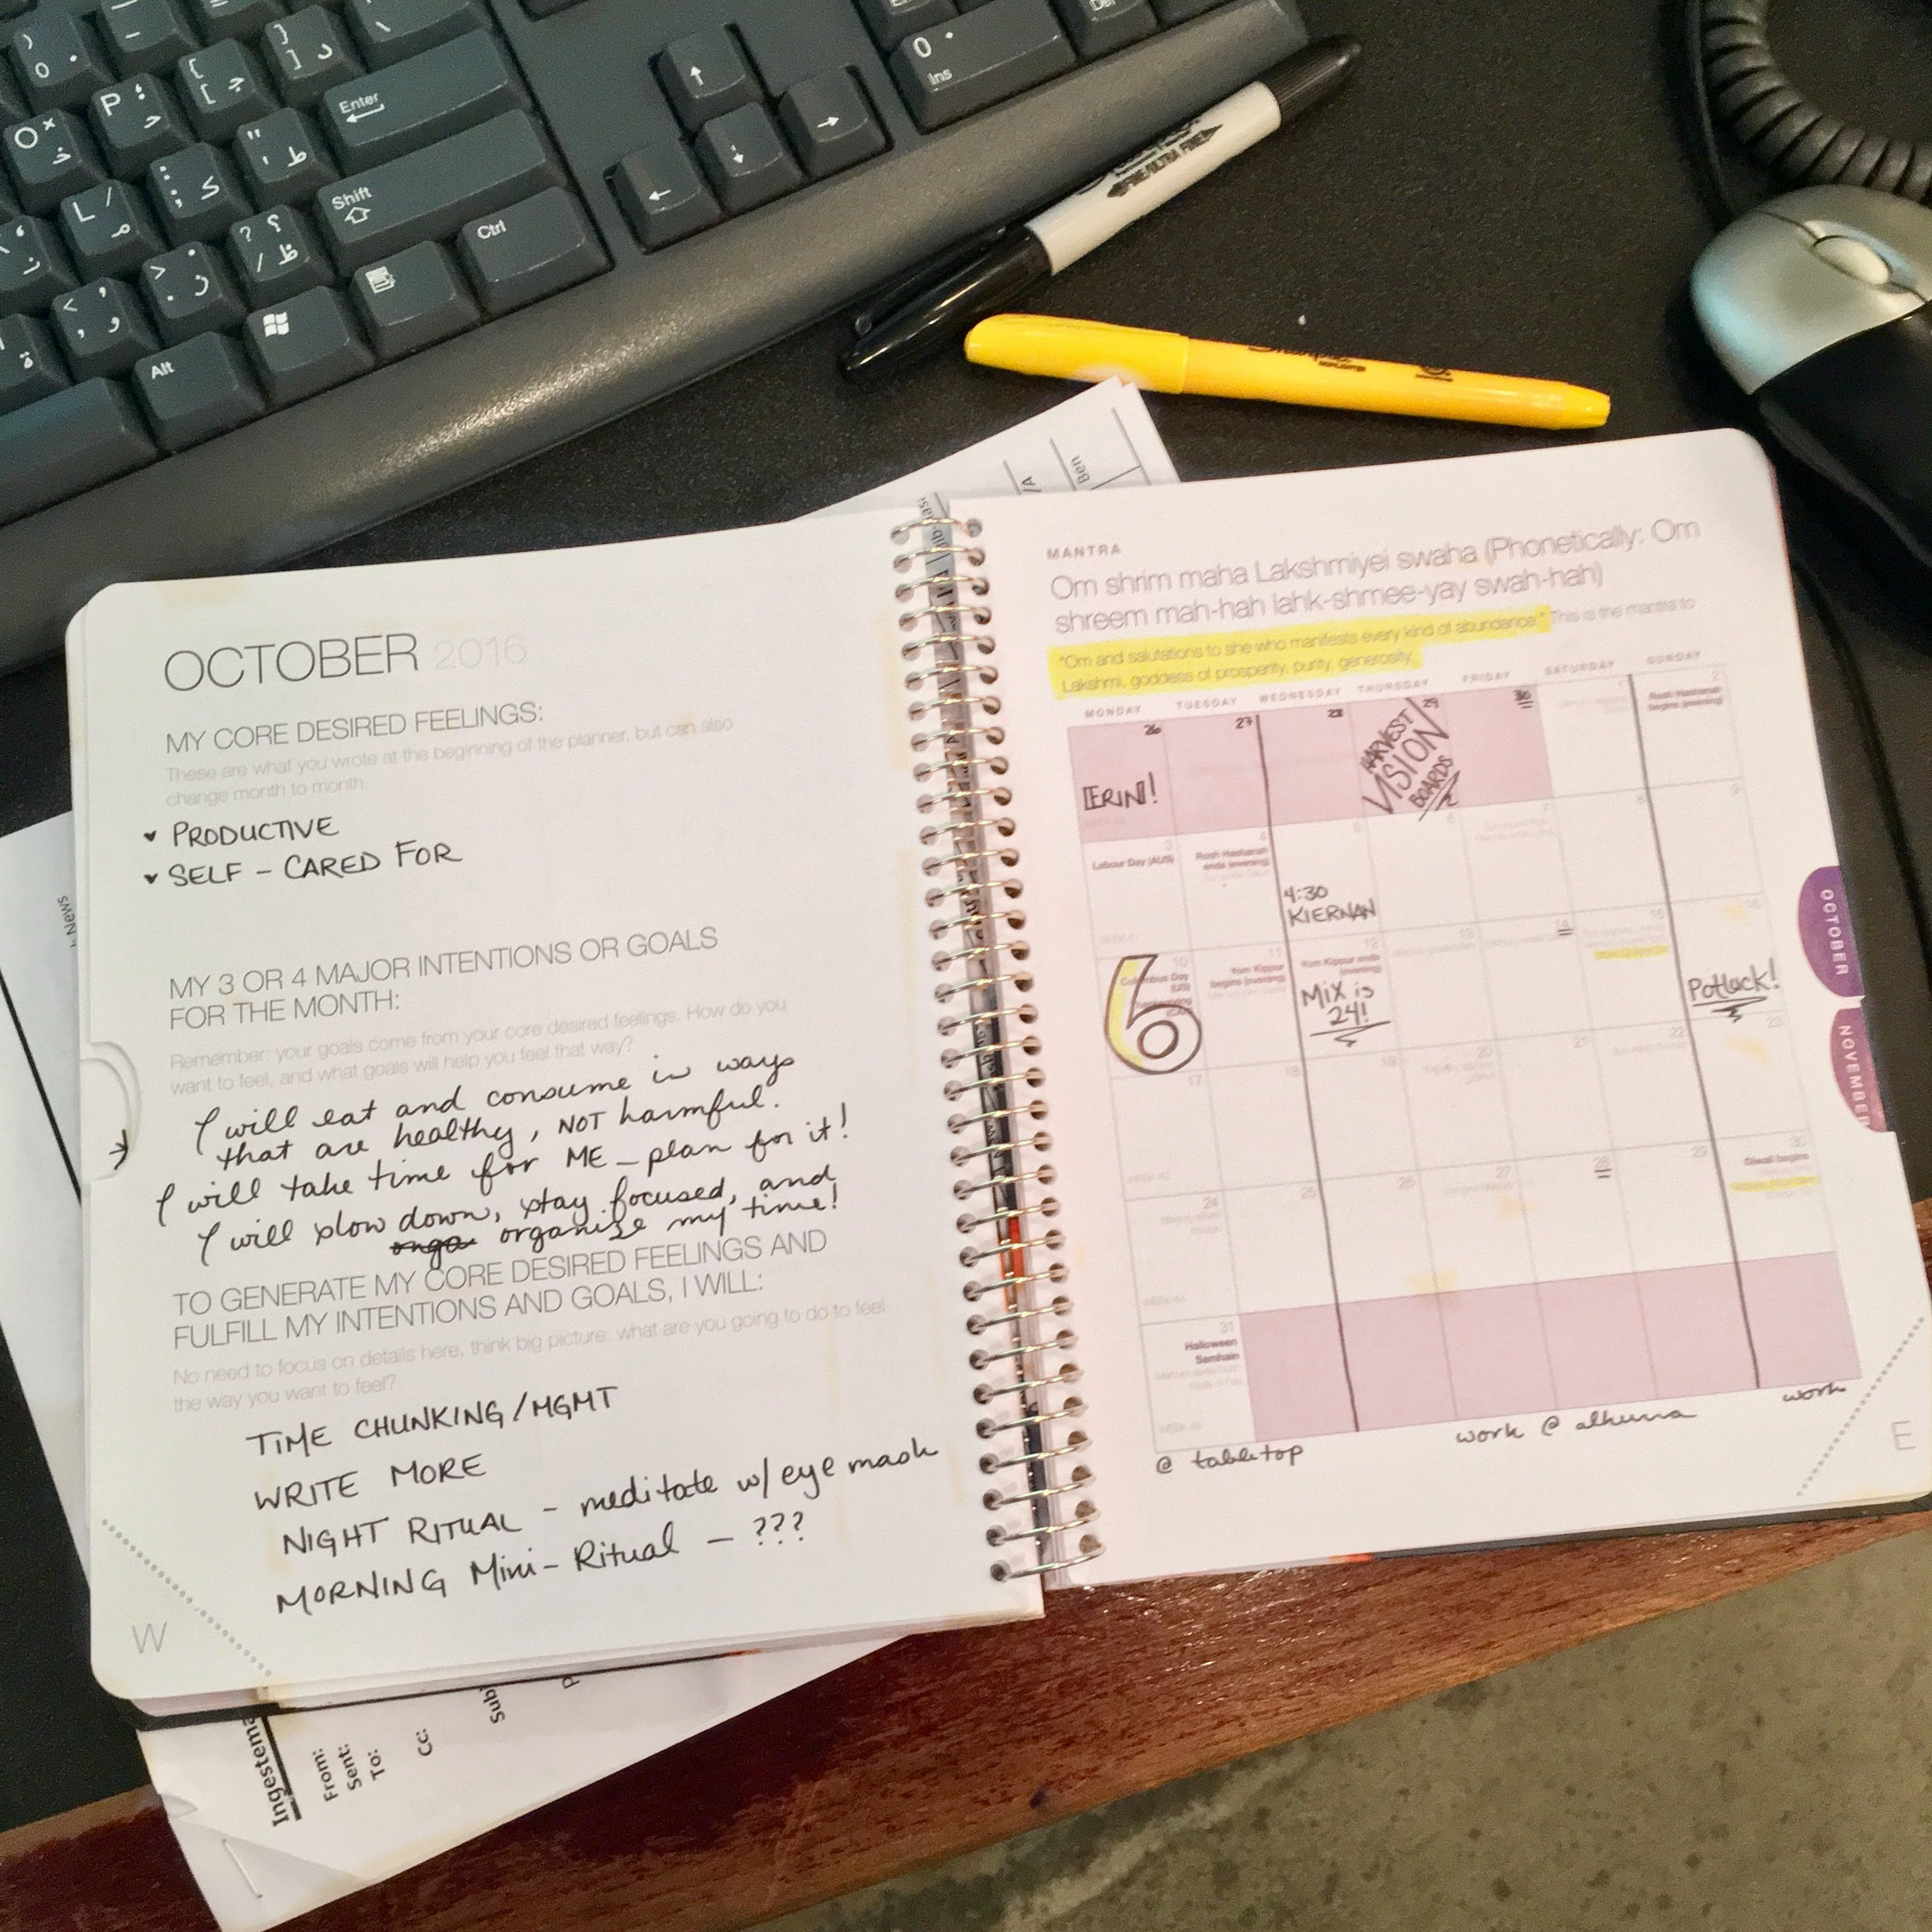 OCTOBER 2016
MY CORE DESIRED FEELINGS:
These are what you wrote at the beginning of the planner, but can also
change month to month.
PRODUCTIVE
SELF - CARED FOR
MY 3 OR 4 MAJOR INTENTIONS OR GOALS
FOR THE MONTH:
Remember: your goals come from your core desired feelings. How do you
want to feel, and what goals will help you feel that way?
I will eat and consume in ways
that are healthy, NOT harmful.
I will take time for ME - plan for it!
I will slow down, stay focused, and
organize my time!
TO GENERATE MY CORE DESIRED FEELINGS AND
FULFILL MY INTENTIONS AND GOALS, I WILL:
No need to focus on details here, think big picture: what are you going to do to feel
the way you want to feel?
TIME CHUNKING/MGMT
WRITE MORE
NIGHT RITUAL - meditate w/ eye mask
MORNING Mini-Ritual - ???
W
MANTRA
Om shrim maha Lakshmiyei swaha (Phonetically: Om
shreem mah-hah lahk-shmee-yay swah-hah)
"Om and salutations to she who manifests every kind of abundance." This is the mantra to
Lakshmi, goddess of prosperity, purity, generosity.
MONDAY TUESDAY WEDNESDAY THURSDAY FRIDAY SATURDAY SUNDAY
26 27 28 29 30 1 2
ERIN!
HARVEST
VISION
BOARDS
Rosh Hashanah
begins (evening)
3 4 5 6 7 8 9
Labour Day (AUS)
Rosh Hashanah
ends (evening)
4:30
KIERNAN
10 11 12 13 14 15 16
6
Columbus Day
(US)
Yom Kippur
begins (evening)
Yom Kippur ends
(evening)
Mix is
24!
Potluck!
17 18 19 20 21 22 23
24 25 26 27 28 29 30
Diwali begins
31
Halloween
Samhain
@ tabletop
work @ alhurra
work
E
OCTOBER
NOVEMBER
Enter
Shift
Ctrl
Alt
P
O
L
0
Ins
Ben
News
From:
Sent:
To:
Cc: